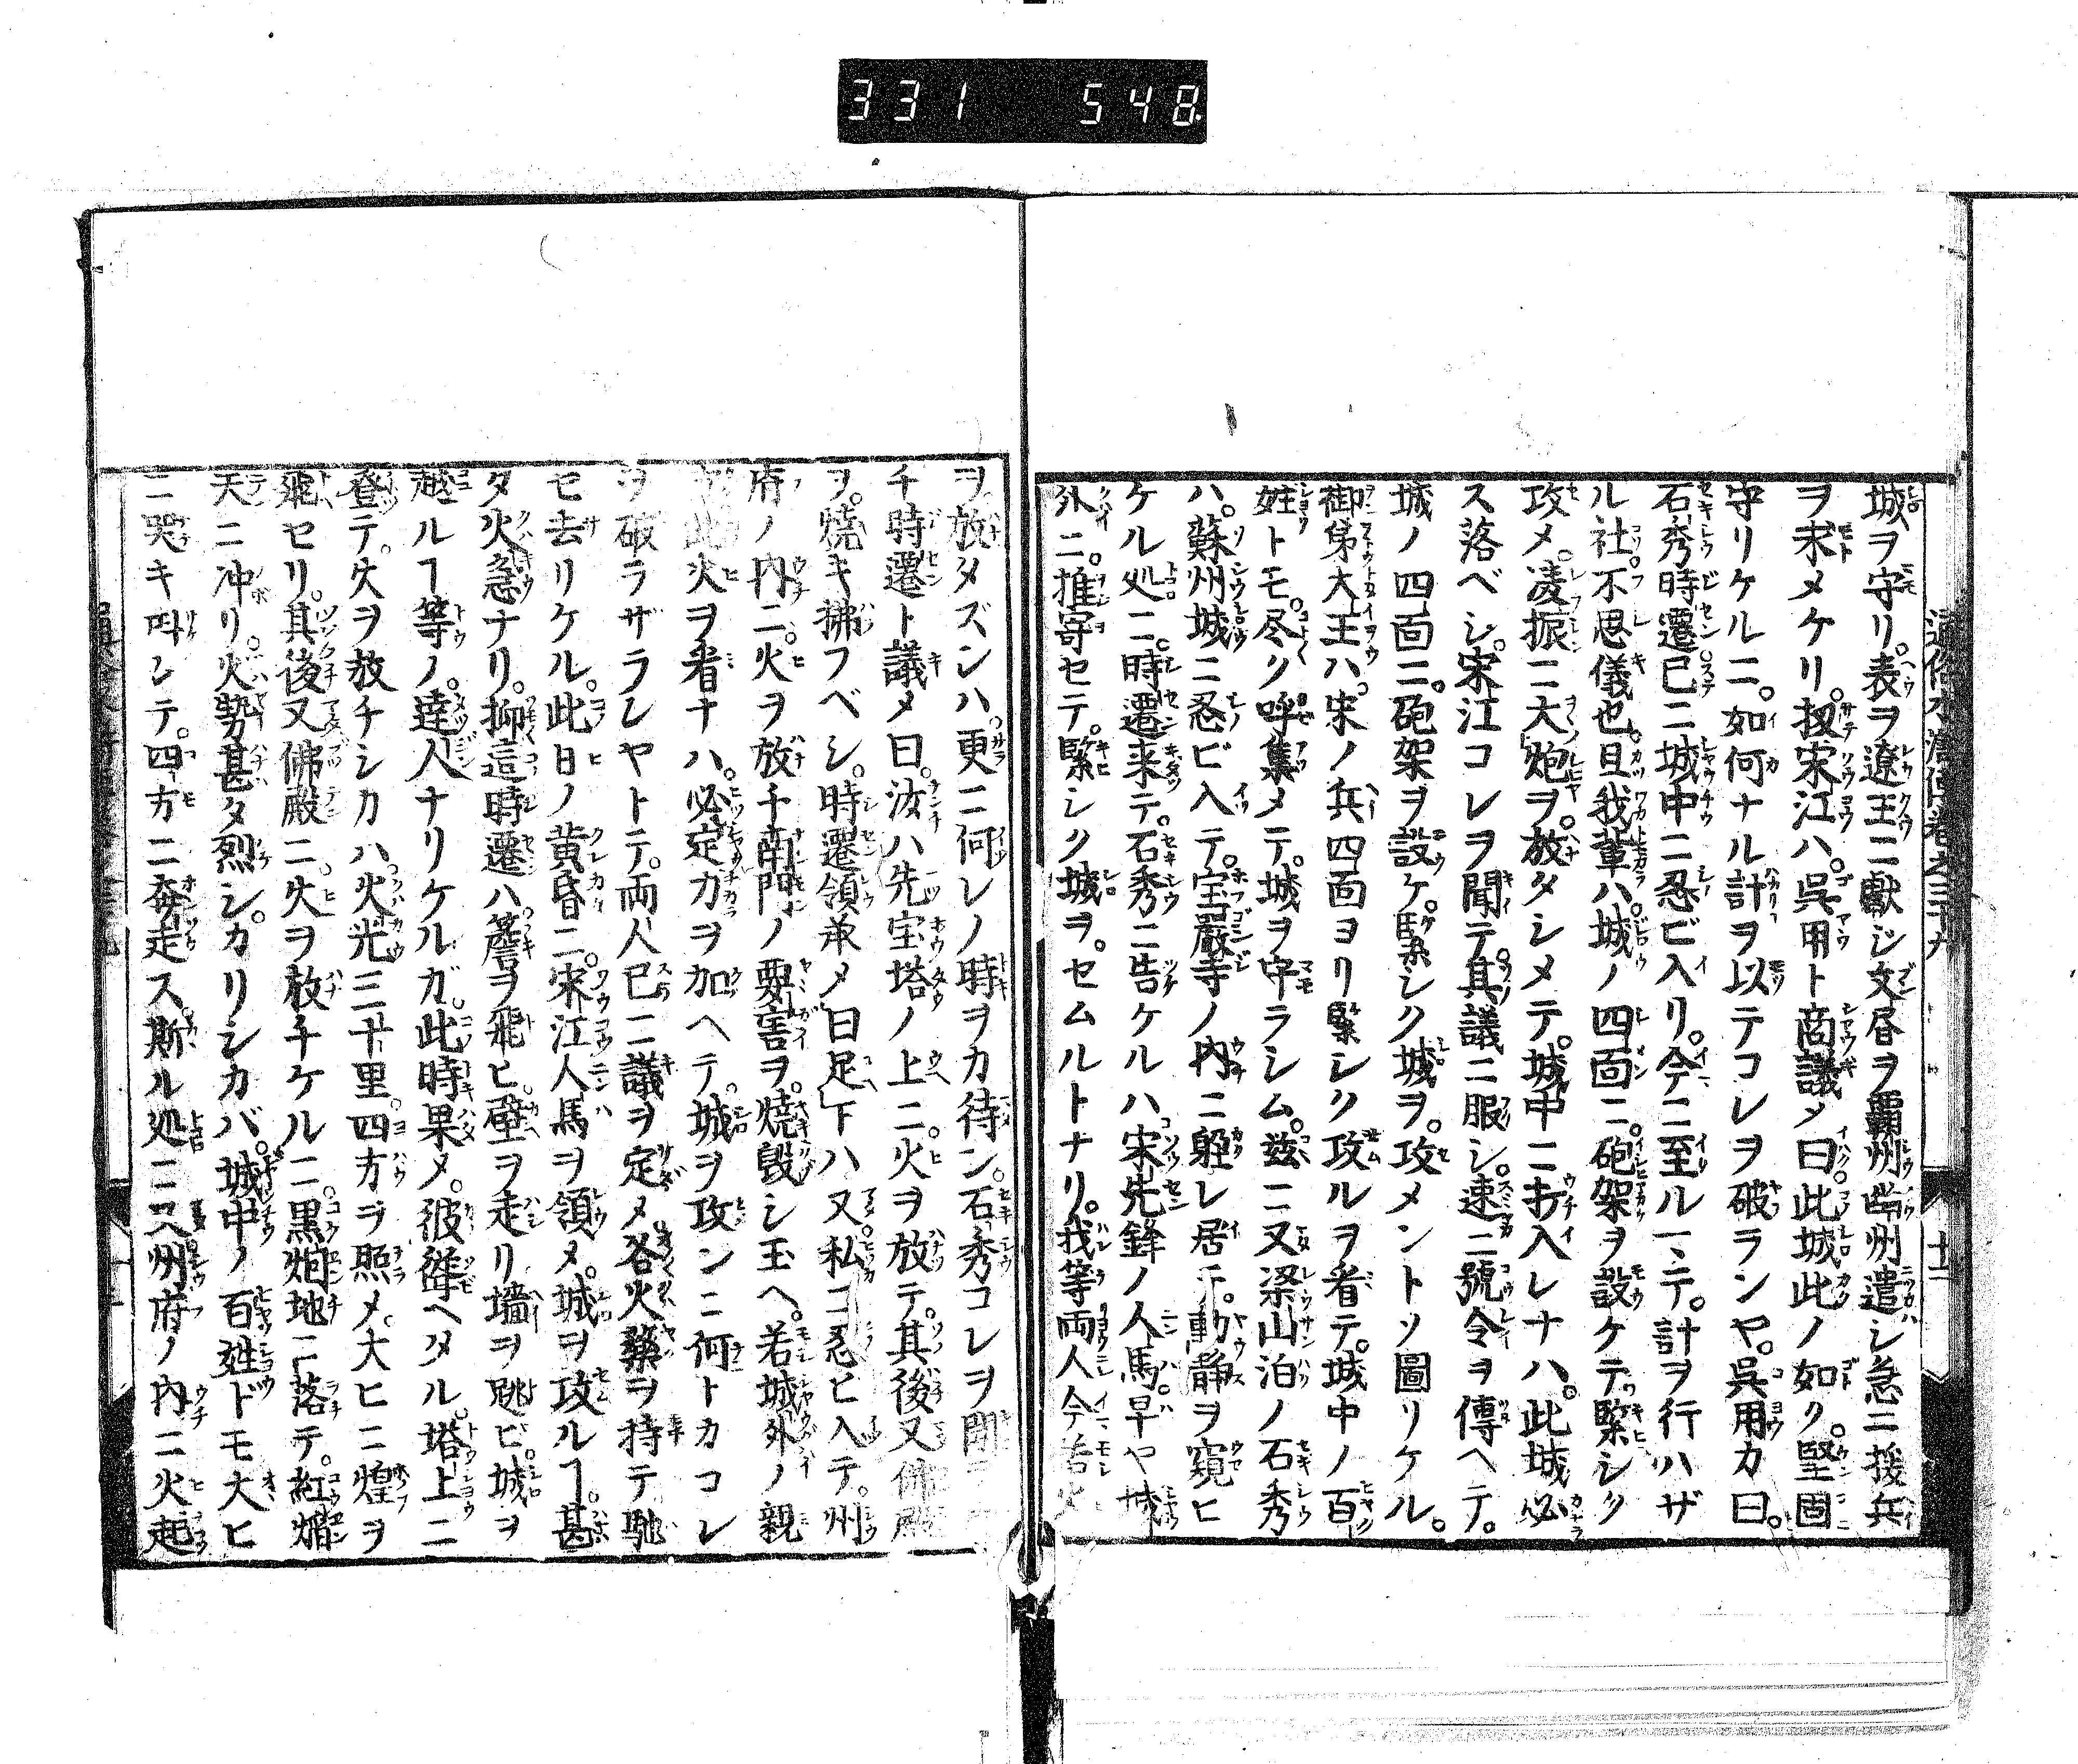 331 548
城ヲ守リ。表ヲ遼王ニ獻シ文昏ヲ覇州幽州遣シ急ニ援兵
ヲ求メケリ。扨宋江ハ。呉用ト商議メ曰此城此ノ如ク。堅固
守リケルニ。如何ナル計ヲ以テコレヲ破ランヤ。呉用カ曰。
石秀時遷已ニ城中ニ忍ビ入リ。今ニ至ルヿテ。計ヲ行ハザ
ル社不思儀也。且我輩ハ。城ノ四面ニ。砲架ヲ設ケテ。緊シク
攻メ。凌振ニ大炮ヲ。放タシメテ。城中ニ打入レナハ。此城必
ス落ベシ。宋江コレヲ聞テ。其議ニ服シ。速ニ號令ヲ傳ヘテ。
城ノ四面ニ。砲架ヲ設ケ。緊シク城ヲ。攻メントソ圖リケル。
御弟大王ハ。宋ノ兵四面ヨリ緊シク攻ルヲ看テ。城中ノ百
姓トモ。尽ク呼集メテ。城ヲ守ラシム。茲ニ又梁山泊ノ石秀
ハ。蘇州城ニ忍ビ入テ。宝嚴寺ノ内ニ躱レ居テ。動静ヲ窺ヒ
ケル処ニ。時遷来テ。石秀ニ告ケルハ宋先鋒ノ人馬。早ヤ城
外ニ。推寄セテ。緊シク城ヲ。セムルトナリ。我等両人今若火
ヲ放タズンハ。更ニ何レノ時ヲカ待ン。石秀コレヲ聞テ
チ時遷ト議メ曰。汝ハ先宝塔ノ上ニ。火ヲ放テ。其後又佛殿
ヲ。焼キ拂フベシ。時遷領承メ曰足下ハ又私ニ忍ヒ入テ。州
府ノ内ニ。火ヲ放チ南門ノ要害ヲ。焼毀シ玉ヘ。若城外ノ親
此火ヲ看ナハ。必定力ヲ加ヘテ。城ヲ攻ンニ何トカコレ
ヲ破ラザラレヤトテ。両人已ニ議ヲ定メ各火藥ヲ持テ馳
セ去リケル。此日ノ黄昏ニ。宋江人馬ヲ領メ。城ヲ攻ルヿ。甚
タ火急ナリ。抑這時遷ハ。簷ヲ飛ヒ。壁ヲ走リ墻ヲ跳ビ。城ヲ
越ルヿ等ノ。達人ナリケルガ。此時果メ。彼聳ヘタル。塔上ニ
登テ。火ヲ放チシカハ。火光三十里。四方ヲ照メ。大ヒニ煌ヲ
飛セリ。其後又佛殿ニ。火ヲ放チケルニ。黒炮地ニ落テ。紅焔
天ニ冲リ。火勢甚タ烈シ。カリシカバ。城中ノ百姓ドモ大ヒ
ニ哭キ叫シテ。四方ニ奔走ス。斯ル処ニ又州府ノ内ニ火起